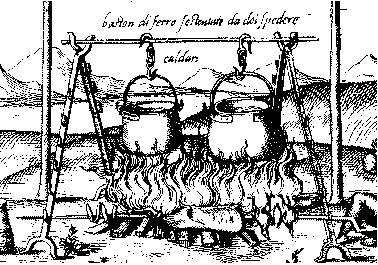 baston di ferro sostenuto da doi spedere
caldari